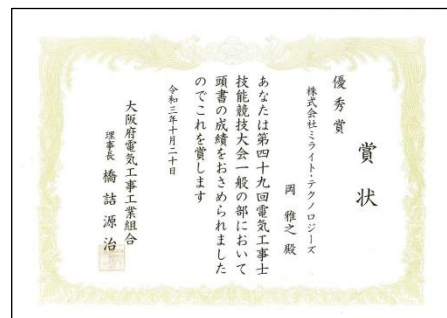 賞状
優秀賞
株式会社ミライト・テクノロジーズ
岡雅之殿
あなたは第四十九回電気工事士
技能競技大会一般の部において
頭書の成績をおさめられました
のでこれを賞します
令和三年十月二十日
大阪府電気工事工業組合
理事長 橋詰源治